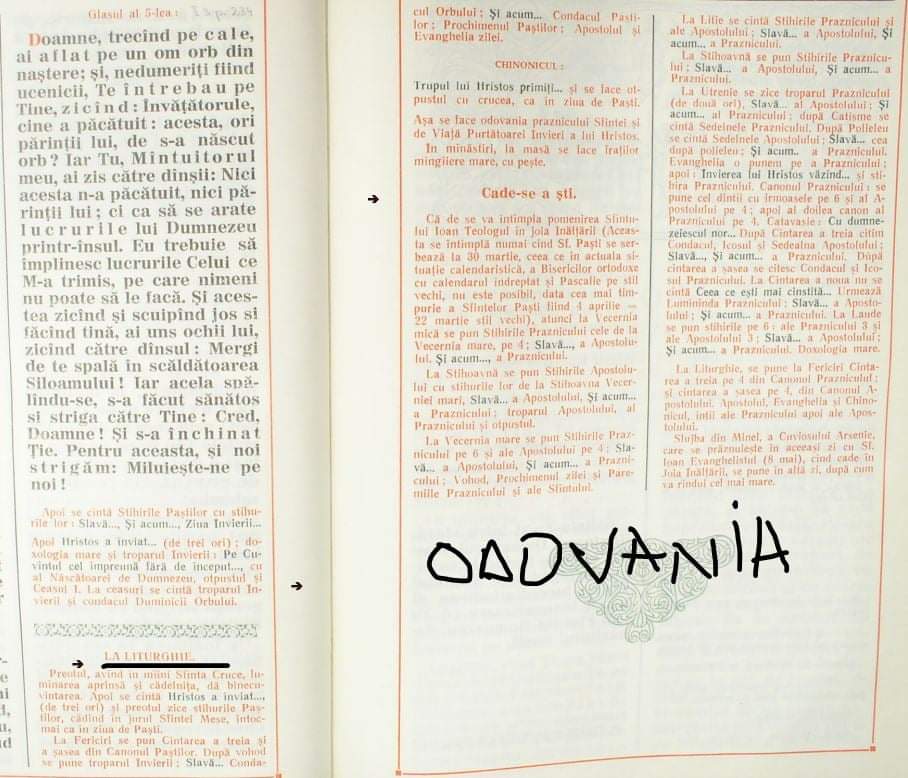 Glasul al 5-lea :
Doamne, trecînd pe cale,
ai aflat pe un om orb din
naștere; și, nedumeriți fiind
ucenicii, Te întrebau pe
Tine, zicînd: Învățătorule,
cine a păcătuit: acesta, ori
părinții lui, de s-a născut
orb? Iar Tu, Mîntuitorul
meu, ai zis către dînșii: Nici
acesta n-a păcătuit, nici pă-
rinții lui; ci ca să se arate
lucrurile lui Dumnezeu
printr-însul. Eu trebuie să
împlinesc lucrurile Celui ce
M-a trimis, pe care nimeni
nu poate să le facă. Și aces-
tea zicînd și scuipînd jos și
făcînd tină, ai uns ochii lui,
zicînd către dînsul: Mergi
de te spală în scăldătoarea
Siloamului! Iar acela spă-
lîndu-se, s-a făcut sănătos
și striga către Tine: Cred,
Doamne! Și s-a închinat
Ție. Pentru aceasta, și noi
strigăm: Miluiește-ne pe
noi!
Apoi se cîntă Stihirile Paștilor cu stihu-
rile lor: Slavă..., Și acum..., Ziua Învierii...
Apoi Hristos a înviat... (de trei ori); do-
xologia mare și troparul Învierii: Pe Cu-
vîntul cel împreună fără de început..., cu
al Născătoarei de Dumnezeu, otpustul și
Ceasul I. La ceasuri se cîntă troparul În-
vierii și condacul Duminicii Orbului.
LA LITURGHIE.
Preotul, avînd în mîini Sfînta Cruce, lu-
mînarea aprinsă și cădelnița, dă binecu-
vîntarea. Apoi se cîntă Hristos a înviat...,
(de trei ori) și preotul zice stihurile Paș-
tilor, cădind în jurul Sfintei Mese, întoc-
mai ca în ziua de Paști.
La Fericiri se pun Cîntarea a treia și
a șasea din Canonul Paștilor. După vohod
se pune troparul Învierii; Slavă... Conda-
cul Orbului; Și acum... Condacul Paști-
lor; Prochimenul Paștilor; Apostolul și
Evanghelia zilei.
CHINONICUL:
Trupul lui Hristos primiți... și se face ot-
pustul cu crucea, ca în ziua de Paști.
Așa se face odovania praznicului Sfintei și
de Viață Purtătoarei Învieri a lui Hristos.
În mînăstiri, la masă se face fraților
mîngîiere mare, cu pește.
Cade-se a ști.
Că de se va întîmpla pomenirea Sfîntu-
lui Ioan Teologul în joia Înălțării (Aceas-
ta se întîmplă numai cînd Sf. Paști se ser-
bează la 30 martie, ceea ce în actuala si-
tuație calendaristică, a Bisericilor ortodoxe
cu calendarul îndreptat și Pascalie pe stil
vechi, nu este posibil, data cea mai tim-
purie a Sfintelor Paști fiind 4 aprilie =
22 martie stil vechi), atunci la Vecernia
mică se pun Stihirile Praznicului cele de la
Vecernia mare, pe 4; Slavă..., a Apostolu-
lui. Și acum..., a Praznicului.
La Stihoavnă se pun Stihirile Apostolu-
lui cu stihurile lor de la Stihoavna Vecer-
niei mari, Slavă... a Apostolului, Și acum...
a Praznicului; troparul Apostolului, al
Praznicului și otpustul.
La Vecernia mare se pun Stihirile Praz-
nicului pe 6 și ale Apostolului pe 4; Sla-
vă... a Apostolului, Și acum... a Prazni-
cului; Vohod, Prochimenul zilei și Pare-
miile Praznicului și ale Sfîntului.
La Litie se cîntă Stihirile Praznicului și
ale Apostolului; Slavă... a Apostolului, Și
acum... a Praznicului.
La Stihoavnă se pun Stihirile Praznicu-
lui; Slavă... a Apostolului, Și acum... a
Praznicului.
La Utrenie se zice troparul Praznicului
(de două ori), Slavă... al Apostolului; Și
acum... al Praznicului; după Catisme se
cîntă Sedelnele Praznicului. După Polieleu
se cîntă Sedelnele Apostolului; Slavă... cea
după polieleu; Și acum... a Praznicului.
Evanghelia o punem pe a Praznicului;
apoi: Învierea lui Hristos văzînd... și sti-
hira Praznicului. Canonul Praznicului: se
pune cel dintîi cu irmoasele pe 6 și al A-
postolului pe 4; apoi al doilea canon al
Praznicului pe 4. Catavasie: Cu dumne-
zeiescul nor... După Cîntarea a treia citim
Condacul, Icosul și Sedealna Apostolului;
Slavă..., Și acum... a Praznicului. După
cîntarea a șasea se citesc Condacul și Ico-
sul Praznicului. La Cîntarea a noua nu se
cîntă Ceea ce ești mai cinstită... Urmează
Luminînda Praznicului; Slavă... a Aposto-
lului, Și acum... a Praznicului. La Laude
se pun stihirile pe 6: ale Praznicului 3 și
ale Apostolului 3; Slavă... a Apostolului;
Și acum... a Praznicului. Doxologia mare.
La Liturghie, se pune la Fericiri Cînta-
rea a treia pe 4 din Canonul Praznicului;
și cîntarea a șasea pe 4, din Canonul A-
postolului. Apostolul, Evanghelia și Chino-
nicul, întîi ale Praznicului apoi ale Apos-
tolului.
Slujba din Minei, a Cuviosului Arsenie,
care se prăznuiește în aceeași zi cu Sf.
Ioan Evanghelistul (8 mai), cînd cade în
Joia Înălțării, se pune în altă zi, după cum
va rîndui cel mai mare.
ODOVANIA